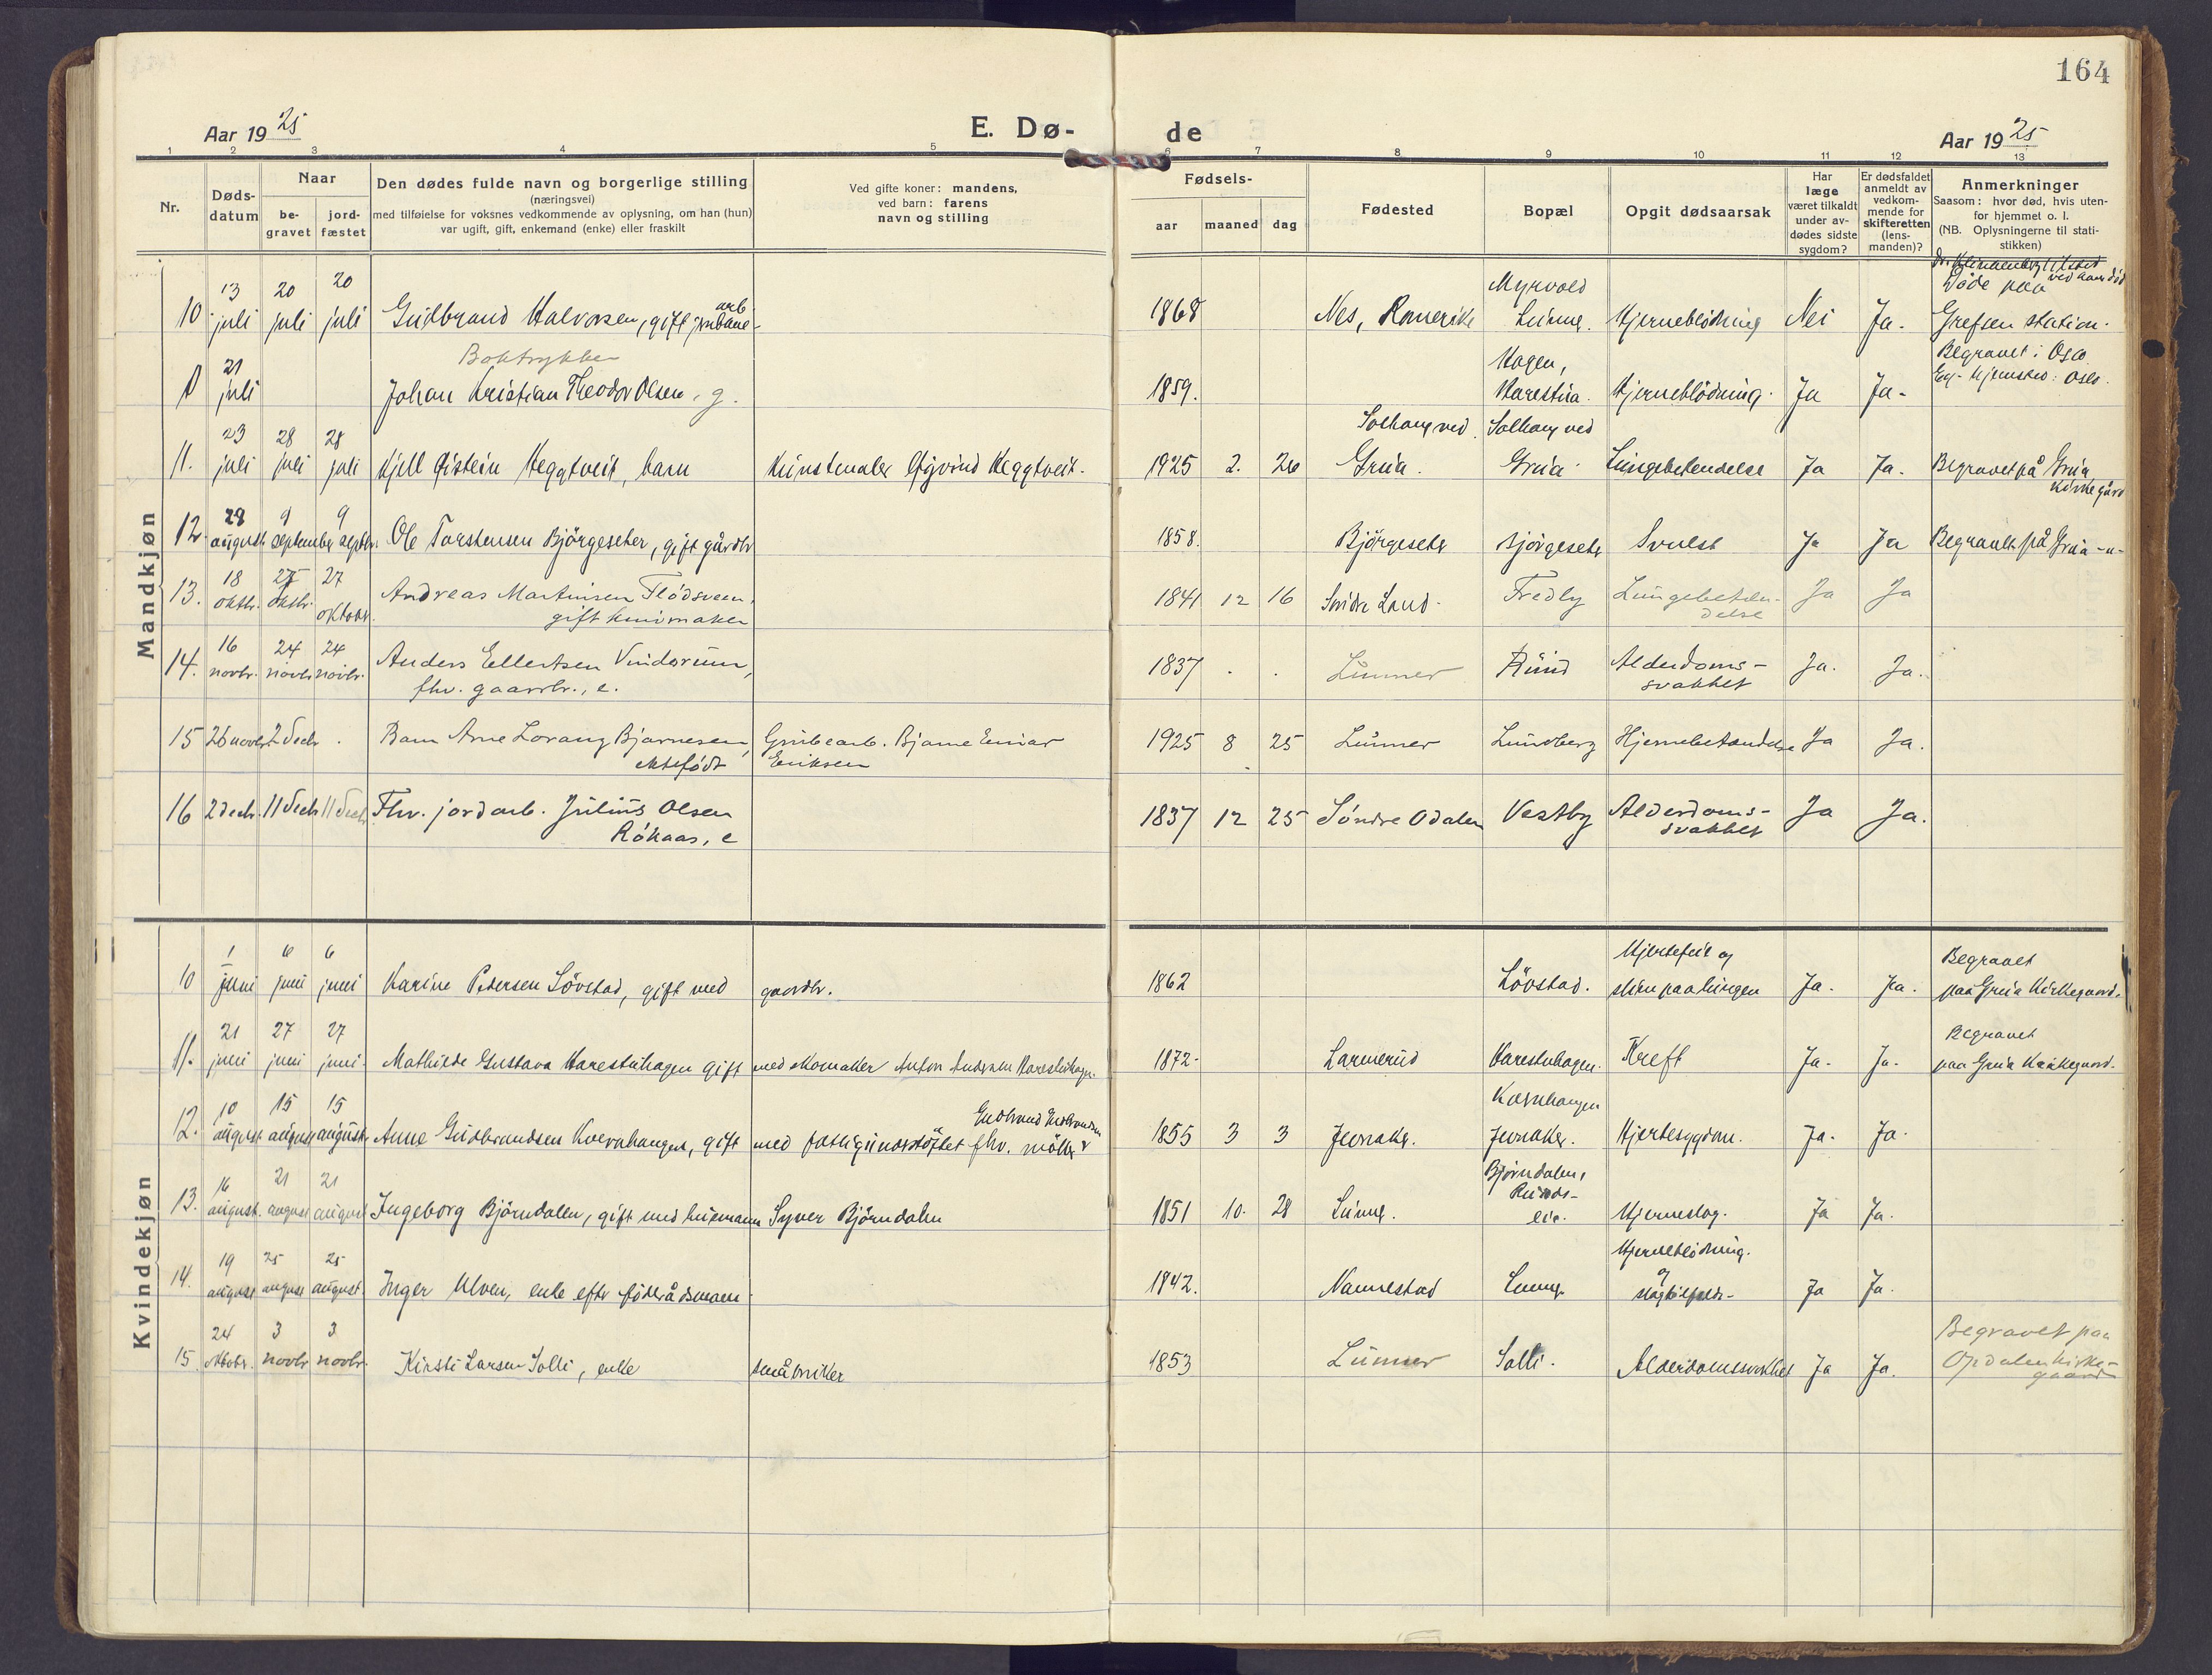 164
Aar 1925
E. Dø-
de
Aar 1925
1 2 3 4 5 6 7 8 9 10 11 12 13
Nr.
Døds-
datum
Naar
be-
gravet
jord-
fæstet
Den dødes fulde navn og borgerlige stilling
(næringsvei)
med tilføielse for voksnes vedkommende av oplysning, om han (hun)
var ugift, gift, enkemand (enke) eller fraskilt
Ved gifte koner: mandens,
ved barn: farens
navn og stilling
Fødsels-
aar maaned dag
Fødested
Bopæl
Opgit dødsaarsak
Har
læge
været tilkaldt
under av-
dødes sidste
sygdom?
Er dødsfaldet
anmeldt av
vedkom-
mende for
skifteretten
(lens-
manden)?
Anmerkninger
Saasom: hvor død, hvis uten-
for hjemmet o. l.
(NB. Oplysningerne til stati-
stikken)
Mandkjøn
13 20 20 arb Myrvold Døde paa
10 juli juli juli Gudbrand Halvorsen, gift jernbane- 1868 Nes, Romerike Lunner. Hjerneblödning Nei Ja. Grefsen station.
21 Boktrykker Hagen, Begravet i Oslo
juli Johan Kristian Theodor Olsen, g. 1859. Harestua. Hjerneblödning. Ja Ja- Oslo.
23 28 28 Solhaug ved Solhaug ved
11. juli juli juli Kjell Øistein Heggtveit, barn Kunstmaler Øyvind Heggtveit. 1925 2. 26 Grua. Grua. Lungebetendelse Ja Ja. Begravet på Grua
kirkegård
28 9 9
12. august september septbr. Ole Torstensen Björgeseter, gift gårdbr 1858. Björgeseter Björgeseter Svulst Ja Ja Begravet på Grua -"-
18 27 27
13. oktbr. oktbr. oktober. Andreas Martinsen Flödsveen, 1841 12 16 Søndre Land. Fredly Lungebeten-
gift hjulmaker delse Ja Ja
16 24 24
14. novbr. novbr novbr. Anders Ellertsen Vindorum, 1837 . . Lunner Rund Alderdoms- Ja. Ja.
fhv. gaardbr., e. svakhet
15 26 novbr 2 decbr . Barn Arne Lorang Bjarnesen, Grubearb. Bjarne Einar 1925 8 25 Lunner Lundberg Hjernebetændelse Ja Ja.
ektefödt Eriksen
16 2 decbr. 11 decbr 11 decbr Fhv. jordarb. Julius Olsen 1837 12 25 Søndre Odalen Vestby Alderdoms- Ja Ja.
Rökaas, e svakhet
Kvindekjøn
1 6 6 Hjertefeil og Begravet
10 juni juni juni Karine Pedersen Lövstad, gift med gaardbr. 1862 Lövstad. Ja. Ja. paa Grua Kirkegaard.
21 27 27 Begravet
11. juni juni juni. Mathilde Gustava Harestuhagen gift med skomaker Anton Andersen Harestuhagen. 1872. Larmerud Harestuhagen. Kreft Ja. Ja. paa Grua Kirkegaard.
10 15 15 Gudbrand Gudbrandsen Kvernhaugen
12. august august august Anne Gudbrandsen Kvernhaugen, gift med fattigunderstöttet fhv. möller 1855 3 3 Jevnaker. Jevnaker. Hjertesygdom. Ja. Ja.
16 21 21 Björndalen,
Runds-
13. august. august august Ingeborg Björndalen, gift med husmann Syver Björndalen 1851 10. 28 Lunner. eie. Hjerneslag. Ja Ja.
19 25 25 Hjerneblödning.
og
14. august august august. Inger Ulven, enke efter föderådsmann 1842. Nannestad Lunner. slagtilfelde- Ja Ja.
24 3 3 Begravet paa
15. oktobr. novbr novbr. Kirsti Larsen Solli, enke småbruker 1853 Lunner Solli. Alderdomssvakhet Ja Ja. Opdalen kirke-
gaard